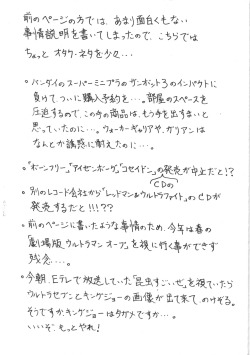 前のページの方では、あまり面白くもない
事情説明を書いてしまったので、こちらでは
ちょっとオタク・ネタを少々…
。バンダイのスーパーミニプラのザンボット3のインパクトに
負けて、ついに購入予約を…。部屋のスペースを
圧迫するので、この手の商品は、もう手を出すまいと
思っていたのに…。ウォーカーギャリアや、ガリアンは
なんとか誘惑に耐えたのに…。
。「ボーンフリー」「アイゼンボーグ」「コセイドン」の発売が中止だと!?
CDの
。別のレコード会社から「レッドマン&ウルトラファイト」のCDが
発売するだと!!!??
。前のページに書いたような事情のため、今年は春の
「劇場版ウルトラマンオーブ」を視に行く事ができず
残念…。
。今朝、Eテレで放送していた「昆虫すごいぜ」を視ていたら
ウルトラセブンとキングジョーの画像が出て来て、のけぞる。
そうですか、キングジョーはタガメですか…。
いいぞ、もっとやれ!